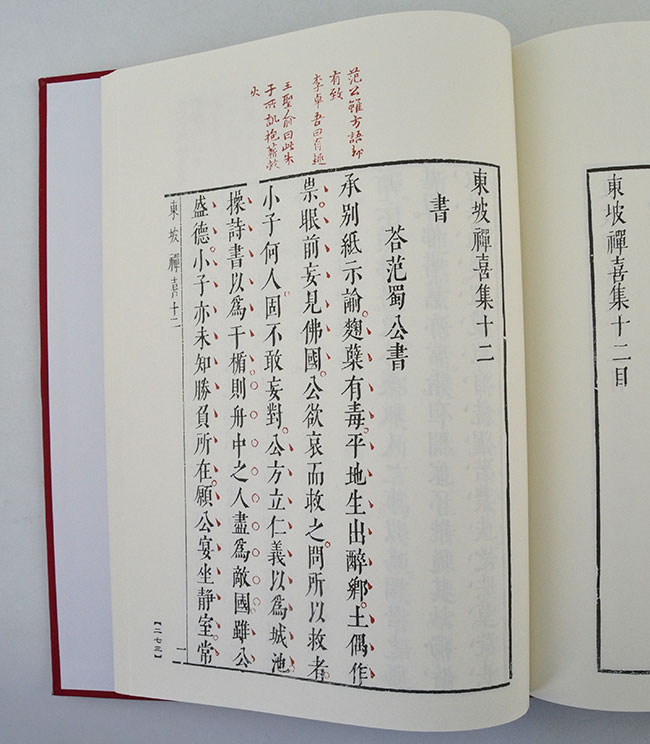 東坡禪喜集十二目
東坡禪喜集十二
書
荅范蜀公書
范公雖方語却
有致
李卓吾曰有趣
王聖俞曰此朱
子所抱薪救
火
承别紙示諭麴蘖有毒平地生出醉鄉土偶作
祟眼前妄見佛國公欲哀而救之問所以救者
小子何人固不敢妄對公方立仁義以爲城池
操詩書以爲干楯則舟中之人盡爲敵國雖公
盛德小子亦未知勝負所在願公宴坐静室常
東坡禪喜十二
一
【二七三】